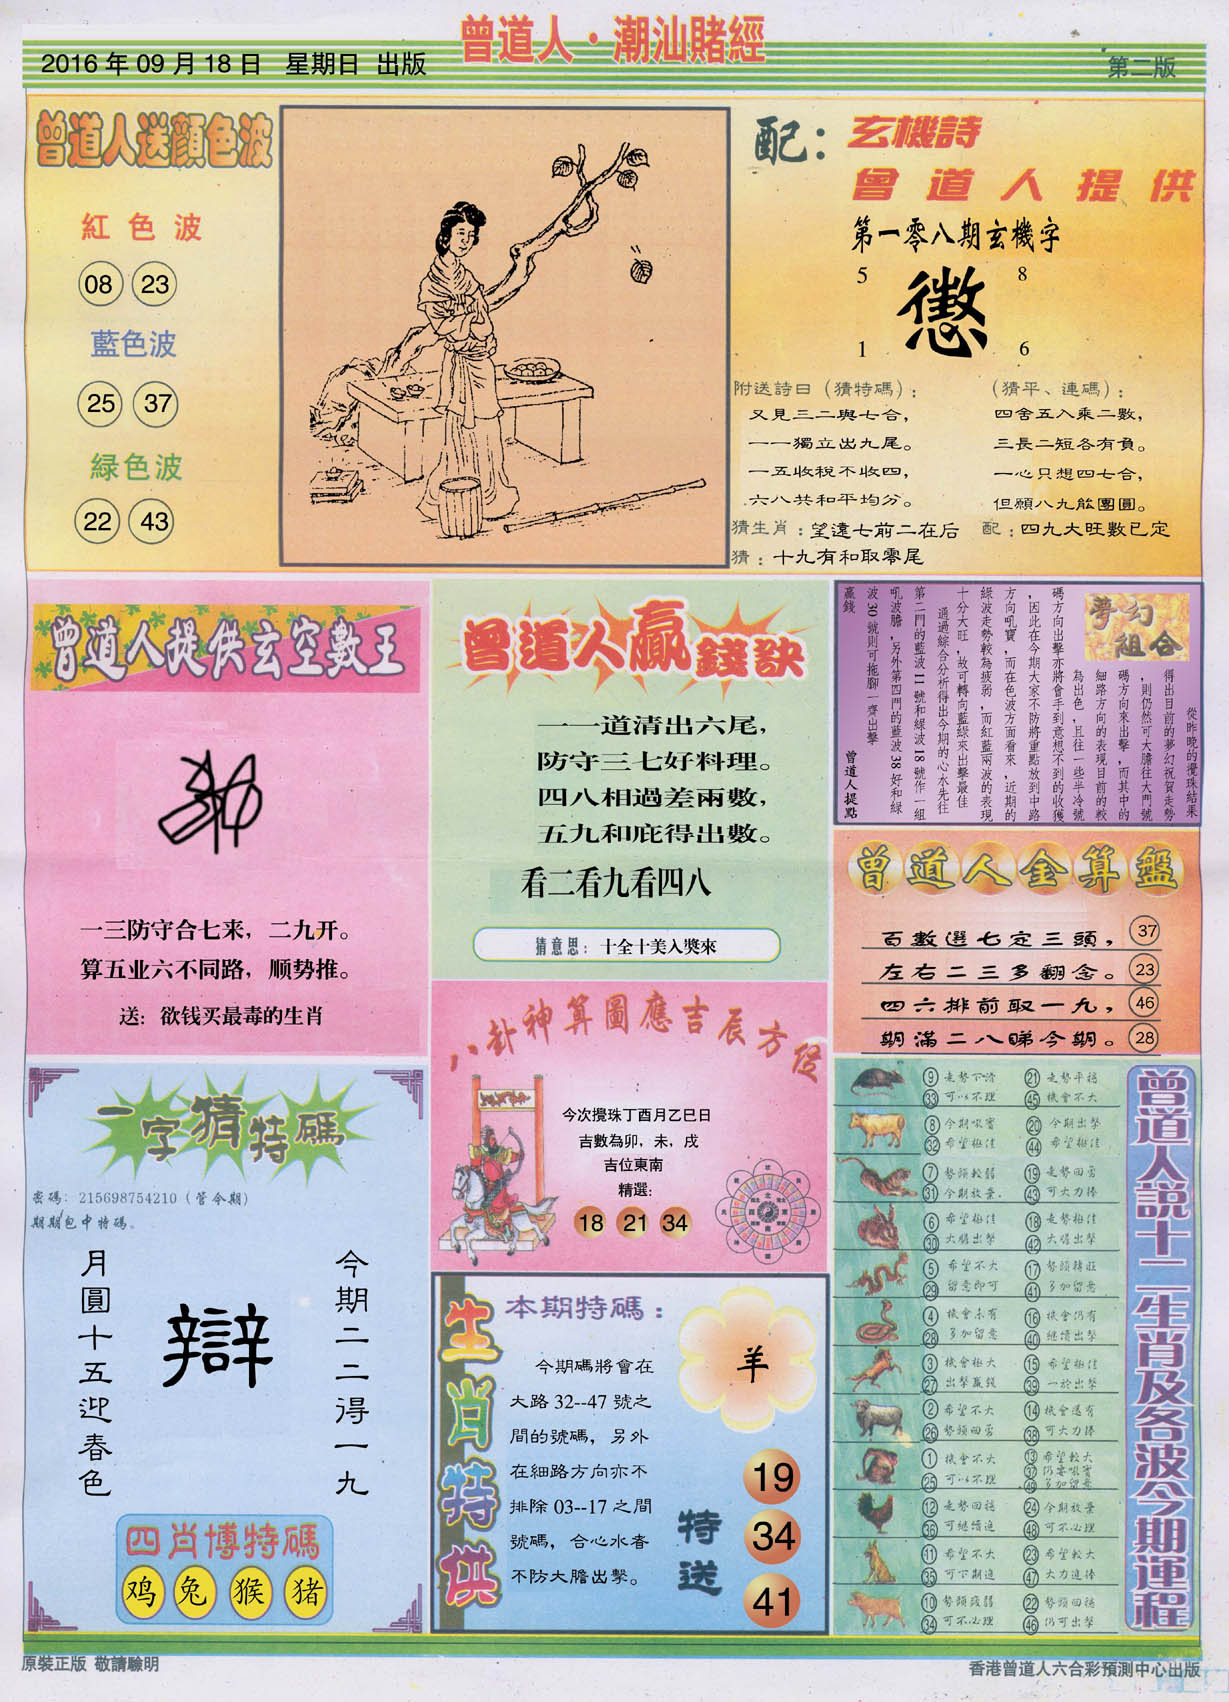 曾道人·潮汕賭經
2016年09月18日 星期日 出版
第二版
曾道人送顔色波
紅色波
08 23
藍色波
25 37
緑色波
22 43
配：
玄機詩
曾道人提供
第一零八期玄機字
5 8
懲
1 6
附送詩曰（猜特碼）：
又見三二與七合，
一一獨立出九尾。
一五收稅不收四，
六八共和平均分。
（猜平、連碼）：
四舍五入乘二數，
三長二短各有負。
一心只想四七合，
但願八九能團圓。
猜生肖：望遠七前二在后
配：四九大旺數已定
猜：十九有和取零尾
曾道人提供玄空數王
一三防守合七来，二九开。
算五业六不同路，顺势推。
送：欲钱买最毒的生肖
曾道人贏錢訣
一一道清出六尾，
防守三七好料理。
四八相過差兩數，
五九和庇得出數。
看二看九看四八
猜意思：十全十美入獎來
夢幻
組合
從昨晚的攪珠結果
得出目前的夢幻祝賀走勢
，則仍然可大膽往大門號
碼方向來出擊，而其中的
細路方向的表現目前的較
為出色，且往一些半冷號
碼方向出擊亦將會手到意想不到的收獲
，因此在今期大家不防將重點放到中路
方向吼寶，而在色波方面看來，近期的
綠波走勢較為疲弱，而紅藍兩波的表現
十分大旺，故可轉向藍綠來出擊最佳
通過綜合分析得出今期的心水先往
第二門的藍波11號和綠波18號作一組
吼波膽，另外第四門的藍波38好和綠
波30號則可拖腳一齊出擊
贏錢
曾道人提點
曾道人金算盤
百數選七定三頭， 37
左右二三多翻念。 23
四六排前取一九， 46
期滿二八睇今期。 28
八卦神算圖應吉辰方位
今次攪珠丁酉月乙巳日
吉數為卯，未，戌
吉位東南
精選:
18 21 34
一字猜特碼
密碼：215698754210（管今期）
期期包中特碼。
今期二二得一九
辯
月圓十五迎春色
四肖博特碼
鸡 兔 猴 猪
生肖特供
本期特碼：
今期碼將會在
大路32--47號之
間的號碼，另外
在細路方向亦不
排除03--17之間
號碼，合心水者
不防大膽出擊。
羊
特送
19
34
41
曾道人説十二生肖及各波今期運程
9 走勢下滑 21 走勢平穩
33 可以不理 45 機會不大
8 今期吼實 20 今期出擊
32 希望極佳 44 希望極佳
7 勢頭較弱 19 走勢回勇
31 今期放棄 43 可大力捧
6 希望極佳 18 走勢極佳
30 大膽出擊 42 大膽出擊
5 希望不大 17 勢頭轉旺
29 留意即可 41 多加留意
4 機會未有 16 機會仍有
28 多加留意 40 繼續出擊
3 機會極大 15 希望極佳
27 出擊贏錢 39 一於出擊
2 希望不大 14 機會還有
26 勢頭回勇 38 可大力捧
1 機會不大 13 希望較大
25 可以不理 37 仍要吼實
49 多加留意
12 走勢回穩 24 今期放棄
36 可繼續追 48 可不必理
11 希望不大 23 希望較大
35 可下期追 47 大力追捧
10 勢頭疲弱 22 勢頭回穩
34 可不必理 46 仍可出擊
原裝正版 敬請驗明
香港曾道人六合彩預測中心出版